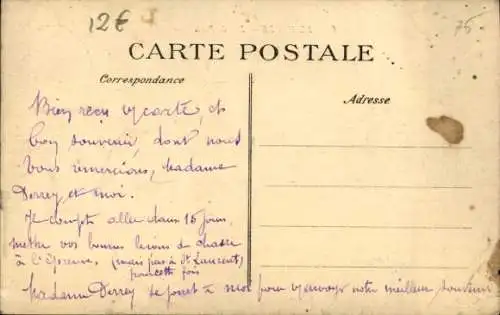 12€
75
CARTE POSTALE
Correspondance
Adresse
Bien reçu v/carte, et
bon souvenir, dont nous
vous remercions, Madame
Derrey et moi.
Je compte aller dans 15 jours,
mettre vos bonnes leçons de chasse
à l'épreuve, (mais pas à St Laurent)
cette fois
Madame Derrey se joint à moi pour v/envoyer notre meilleur souvenir